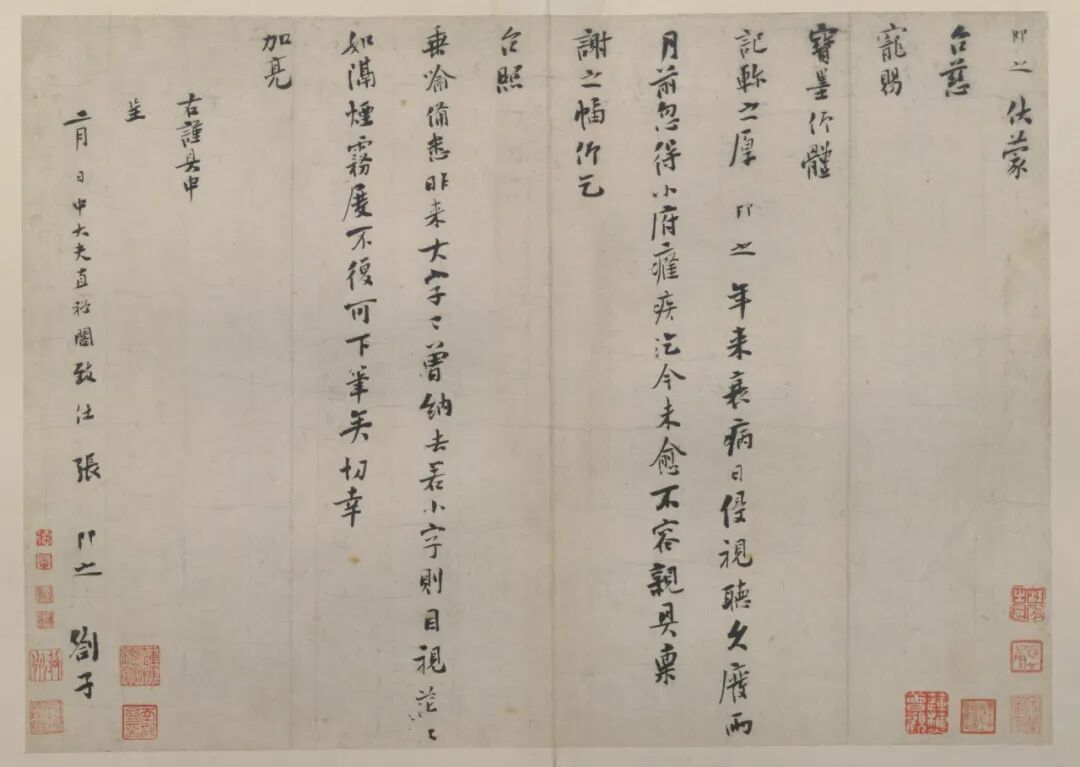 即之 伏蒙
台慈
寵賜
寶墨仰體
記軫之厚 即之 年來衰病日侵視聽久廢兩
月前忽得小府癃疾迄今未愈不容親具稟
謝之幅仰乞
台照
垂喻備悉昨來大字々曾納去若小字則目視茫々
如隔煙霧屢不復可下筆矣切幸
加亮
右謹具申
呈
二月 日中大夫直秘閣致仕張 即之 劄子